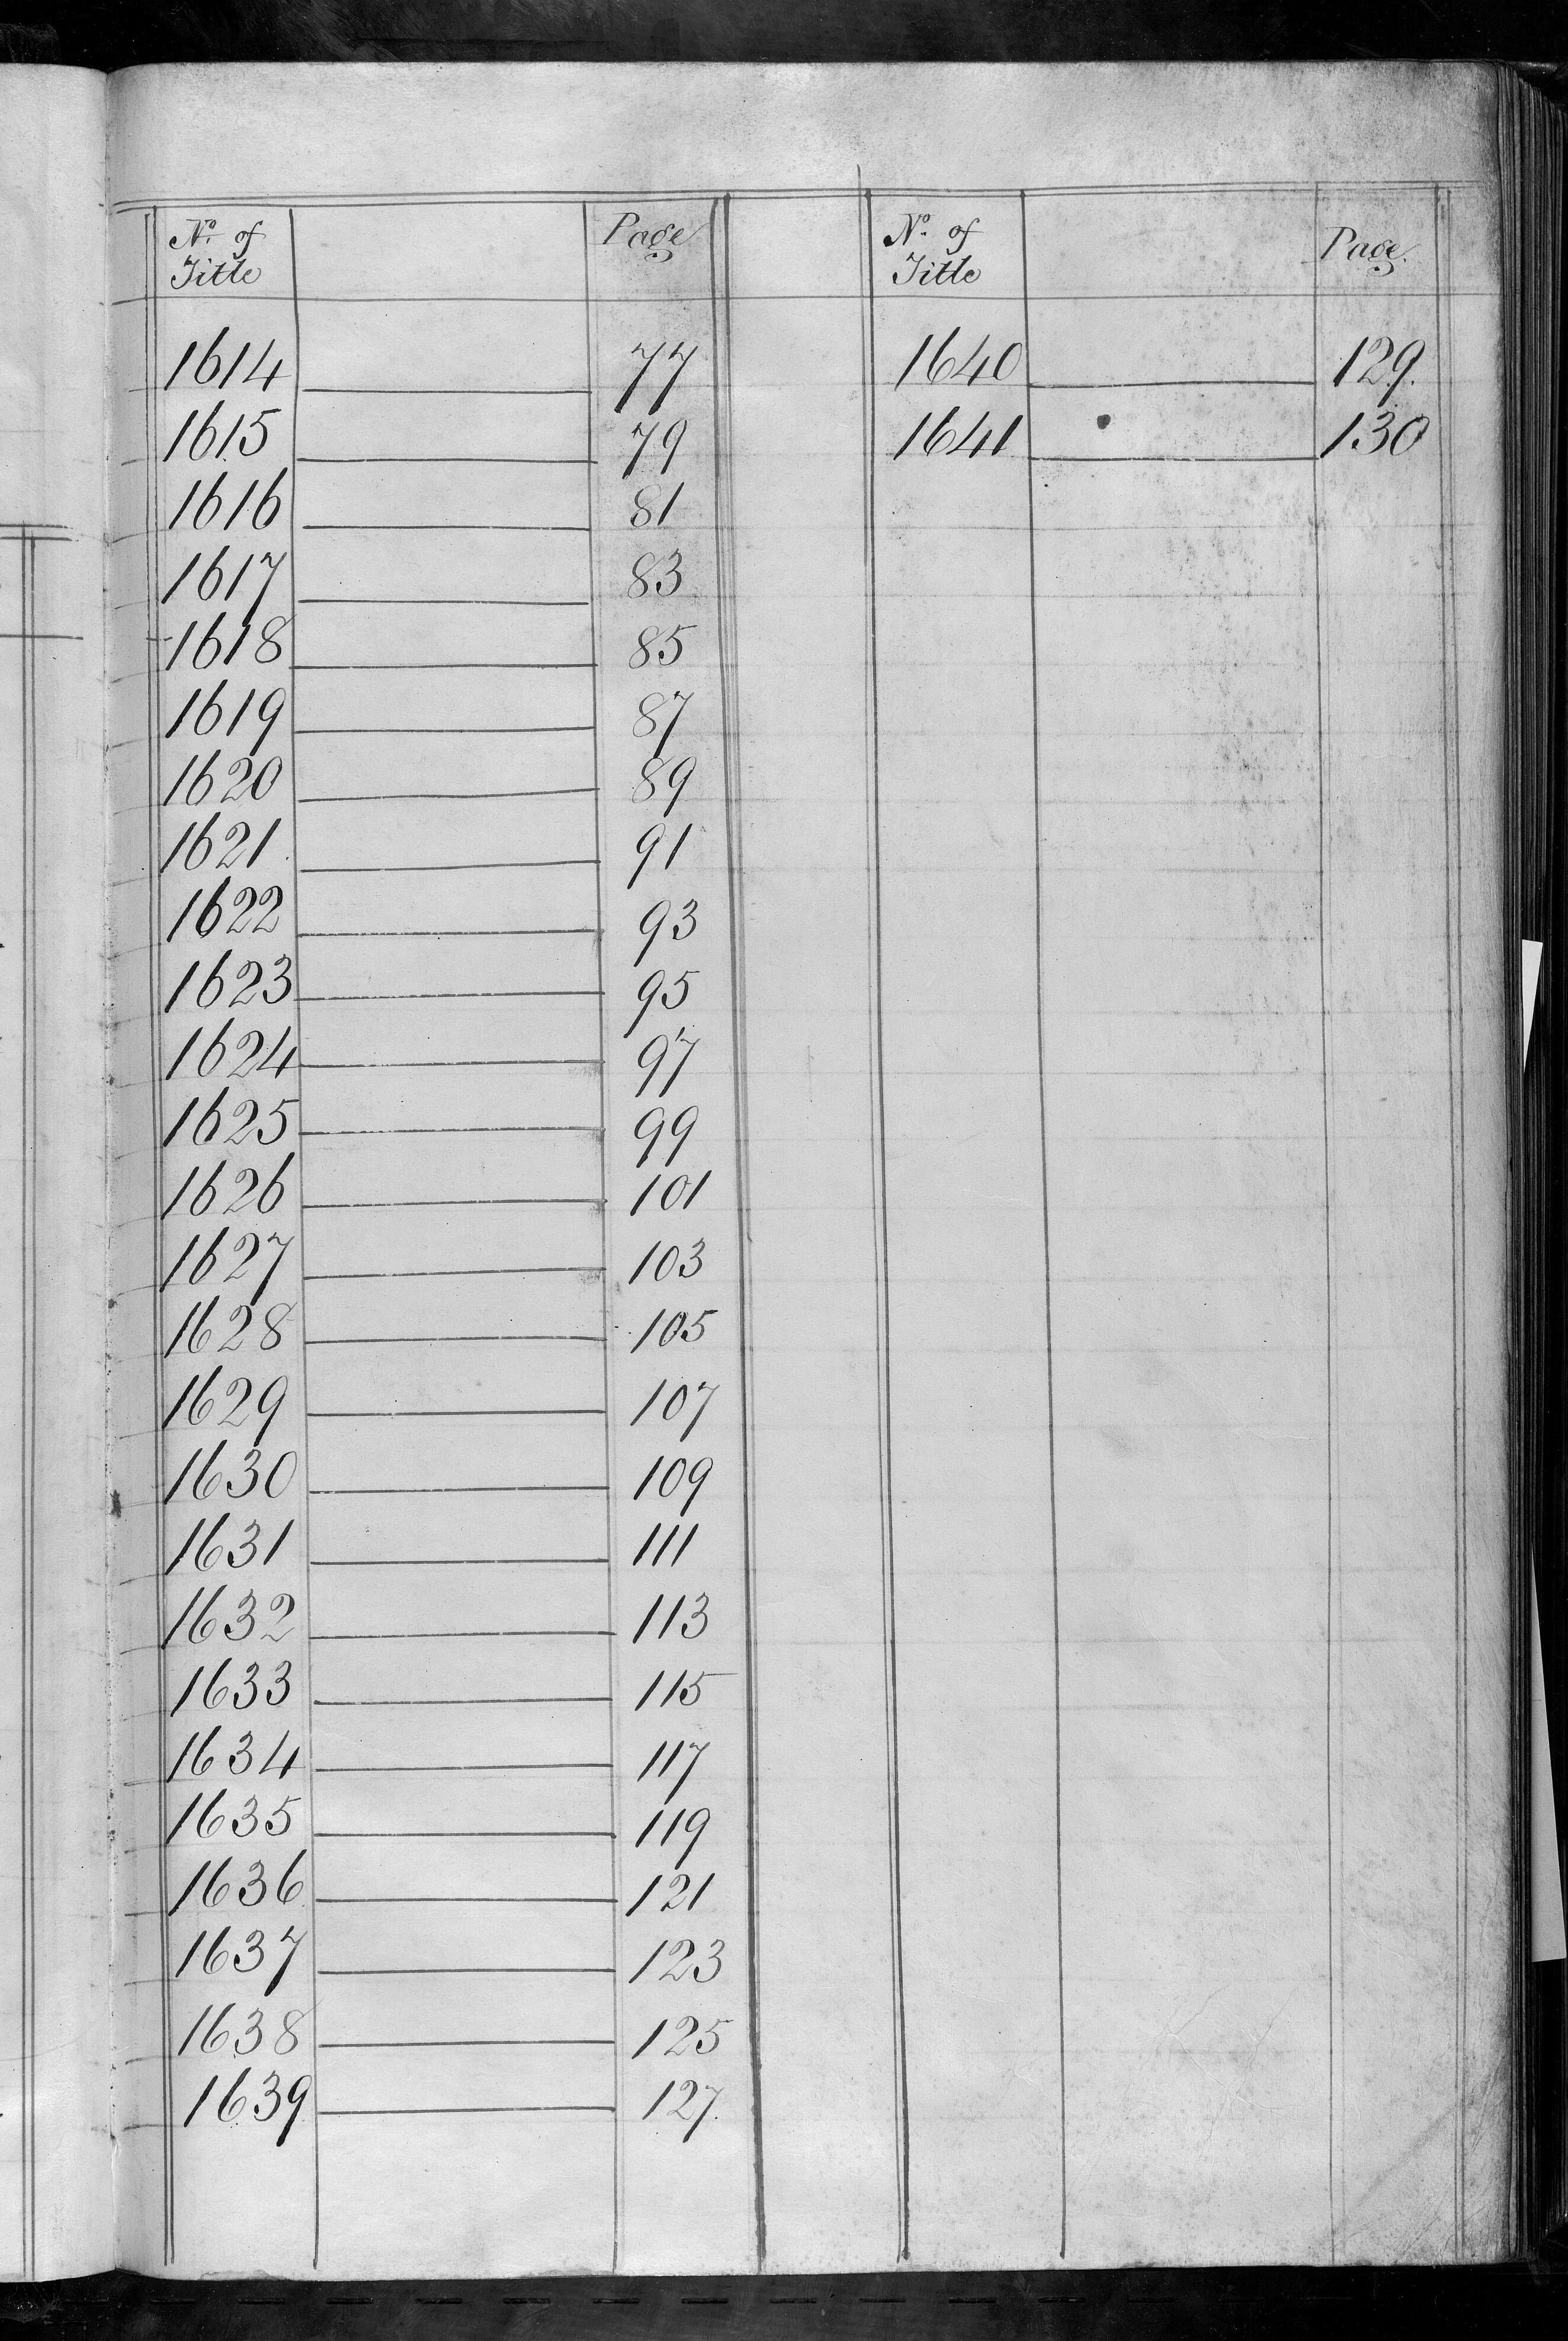 No. of Title Page
1614 77
1615 79
1616 81
1617 83
1618 85
1619 87
1620 89
1621 91
1622 93
1623 95
1624 97
1625 99
1626 101
1627 103
1628 105
1629 107
1630 109
1631 111
1632 113
1633 115
1634 117
1635 119
1636 121
1637 123
1638 125
1639 127.
No. of Title Page.
1640 129.
1641 130